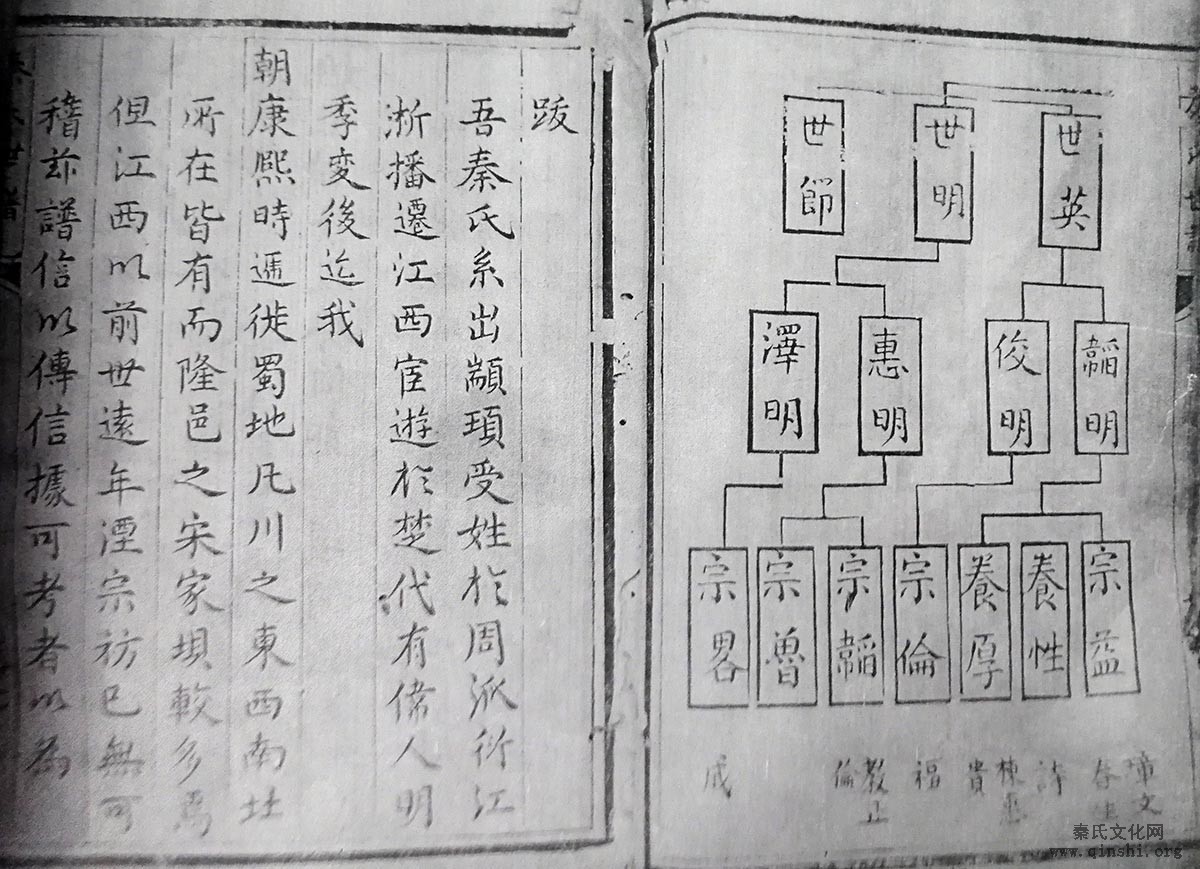 世英
世明
世節
韜明
俊明
惠明
澤明
宗益
養性
養厚
宗倫
宗韜
宗魯
宗畧
文
詩
棟
貴
福
教正
倫
成
跋
吾秦氏系出顓頊受姓於周派衍江
淅播遷江西宦遊於楚代有偉人明
季変後迄我
朝康熙時遞徙蜀地凡川之東西南北
所在皆有而隆邑之宋家垻較多焉
但江西以前世遠年湮宗祊已無可
稽玆譜信以傳信據可考者以為
秦氏文化网
www.qinshi.org